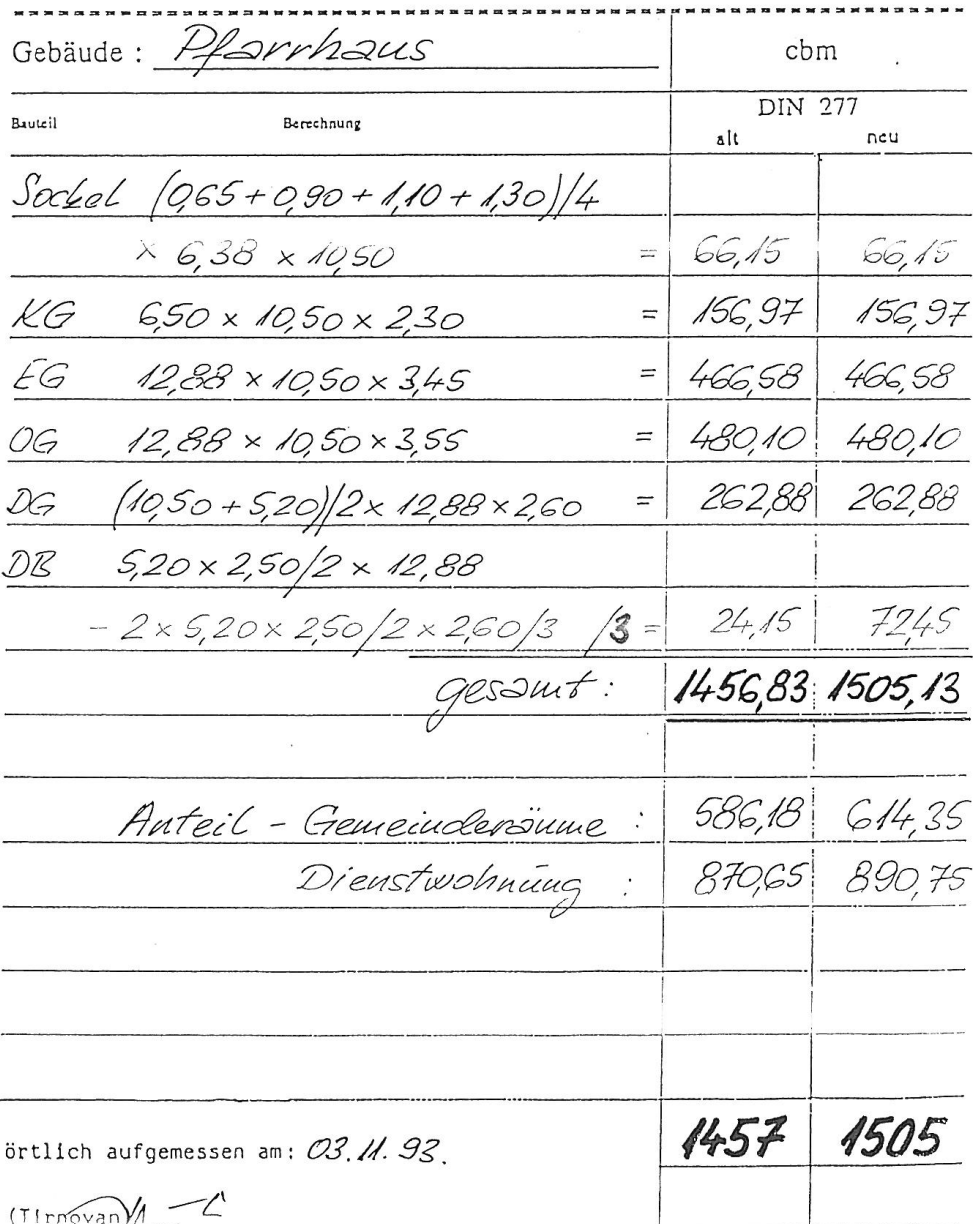 Gebäude : Pfarrhaus cbm
DIN 277
Bauteil Berechnung alt neu
Sockel (0,65 + 0,90 + 1,10 + 1,30)/4
× 6,38 × 10,50 = 66,15 66,15
KG 6,50 × 10,50 × 2,30 = 156,97 156,97
EG 12,88 × 10,50 × 3,45 = 466,58 466,58
OG 12,88 × 10,50 × 3,55 = 480,10 480,10
DG (10,50 + 5,20)/2 × 12,88 × 2,60 = 262,88 262,88
DB 5,20 × 2,50/2 × 12,88
- 2 × 5,20 × 2,50/2 × 2,60/3 /3 = 24,15 72,45
gesamt : 1456,83 1505,13
Anteil - Gemeinderäume : 586,18 614,35
Dienstwohnung : 870,65 890,75
1457 1505
örtlich aufgemessen am: 03.11.93.
(Tirnovan)